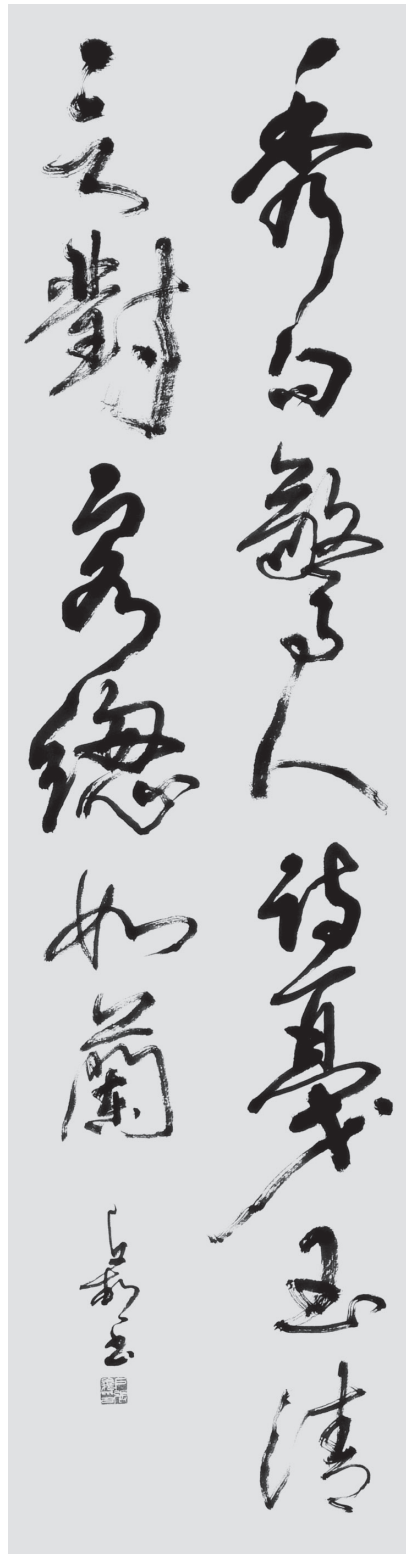 秀句驚人詩戛玉清
言對客總如蘭